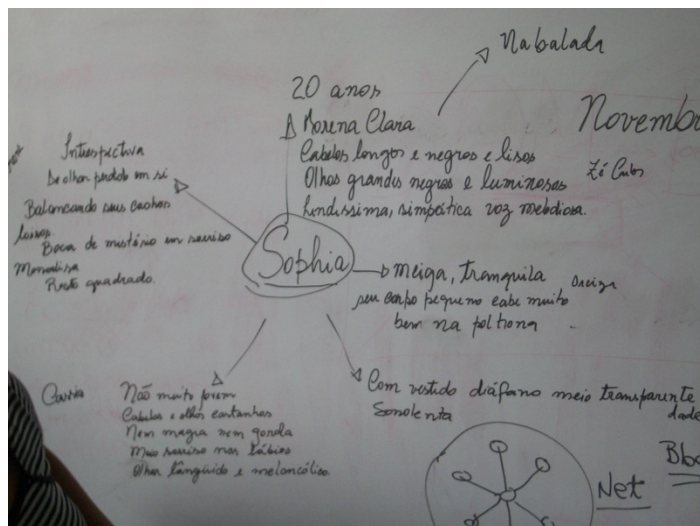 Nabalada
20 anos
Morena Clara
Cabelos longos e negros e lisos
Olhos grandes negros e luminosos
lindissima, simpática voz melodiosa.
Novembr
Zé Carlos
Introspectiva
De olhar perdido em si
Balanceando seus cachos
loiros.
Boca de mistério um sorriso
Monalisa
Rosto quadrado.
Sophia
meiga, tranquila
seu corpo pequeno cabe muito
bem na poltrona
Cassia
Não muito jovem
Cabelos e olhos castanhos
Nem magra nem gorda
Meio sorriso nos lábios
Olhar lânguido e melancólico
Com vestido diáfano meio transparente
Sonolenta
dade
Net
Blo